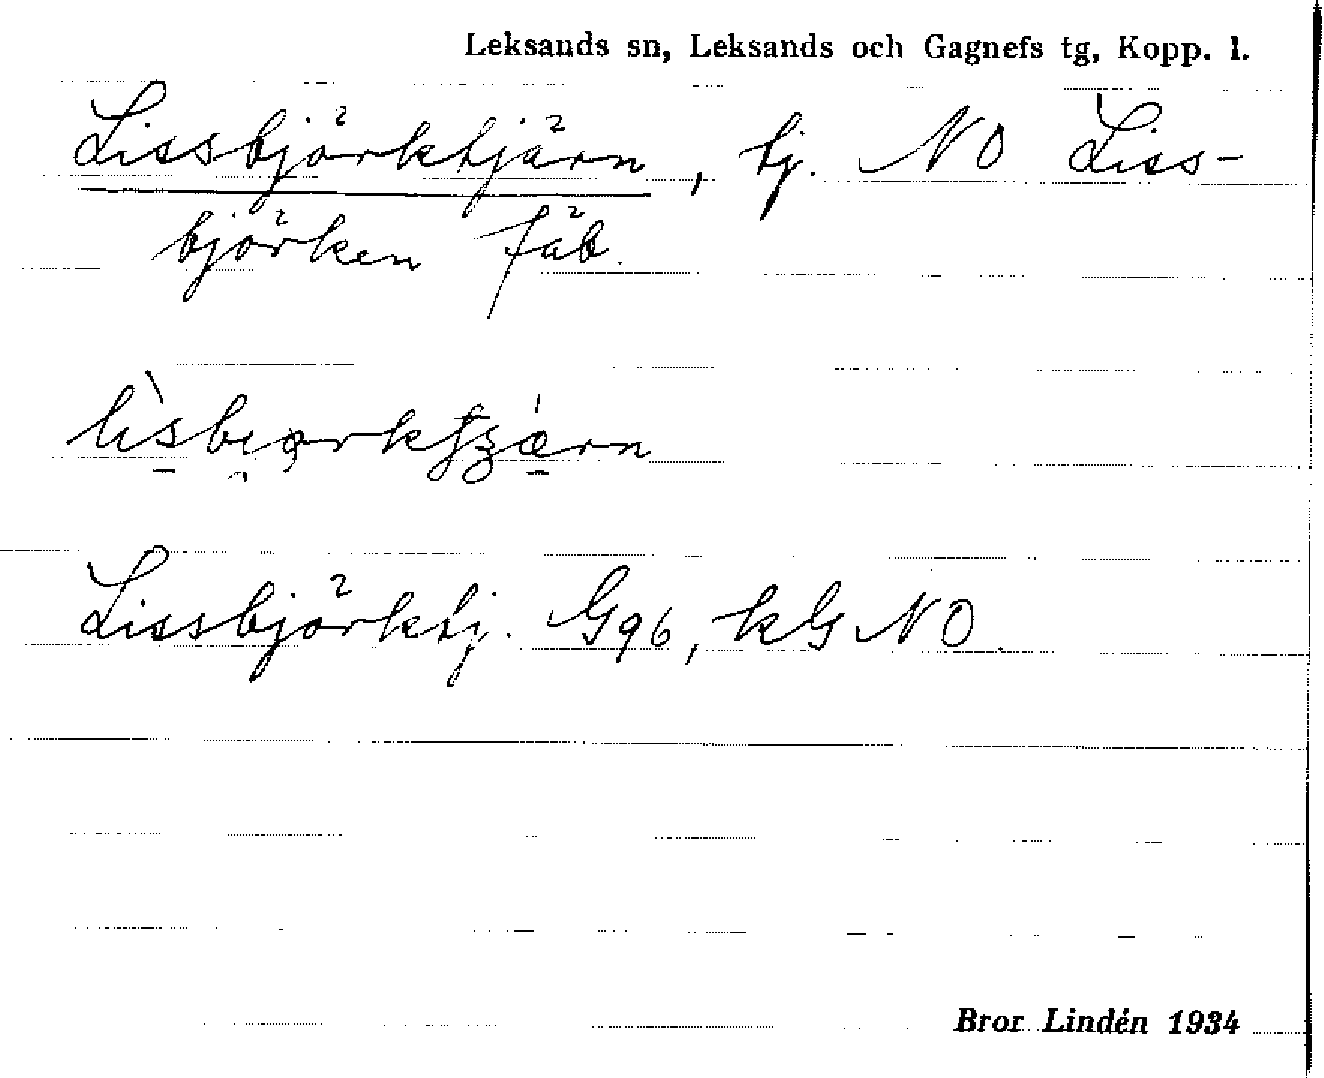 Leksands sn, Leksands och Gagnefs tg, Kopp. l.
Lissbjörktjärn, tj. NO Liss-
björken fäb.
Lissbjörktj. G96, kG NO.
Bror Lindén 1934